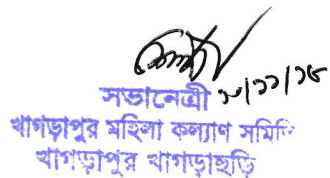 সভানেত্রী
খাগড়াপুর মহিলা কল্যাণ সমিতি
খাগড়াপুর খাগড়াছড়ি